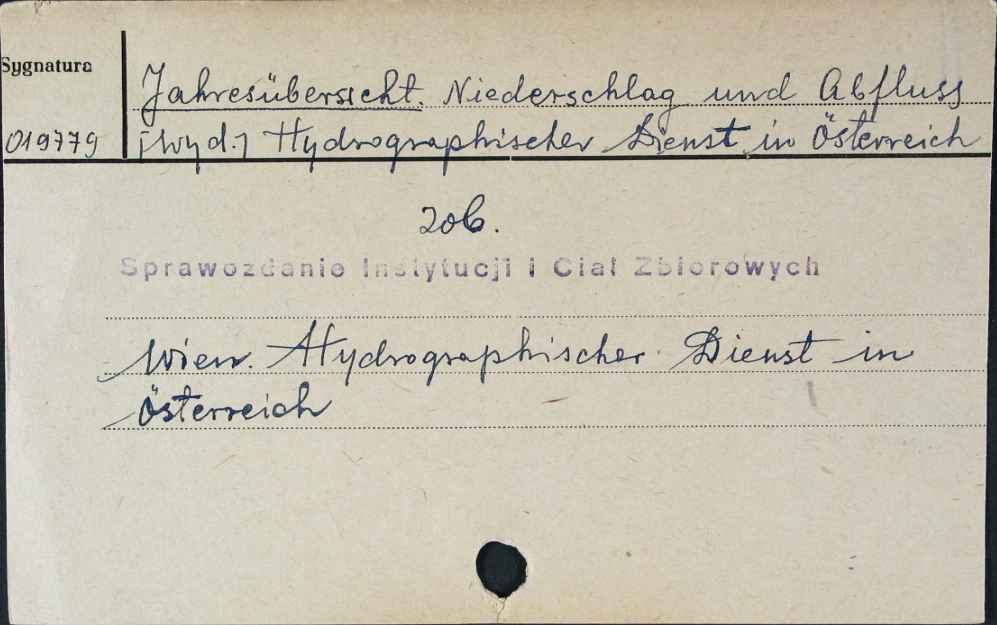 Sygnatura
Jahresübersicht. Niederschlag und Abfluss
019779
[wyd.] Hydrographischer Dienst in Österreich
zob.
Sprawozdanie Instytucji i Ciał Zbiorowych
Wien. Hydrographischer Dienst in
Österreich